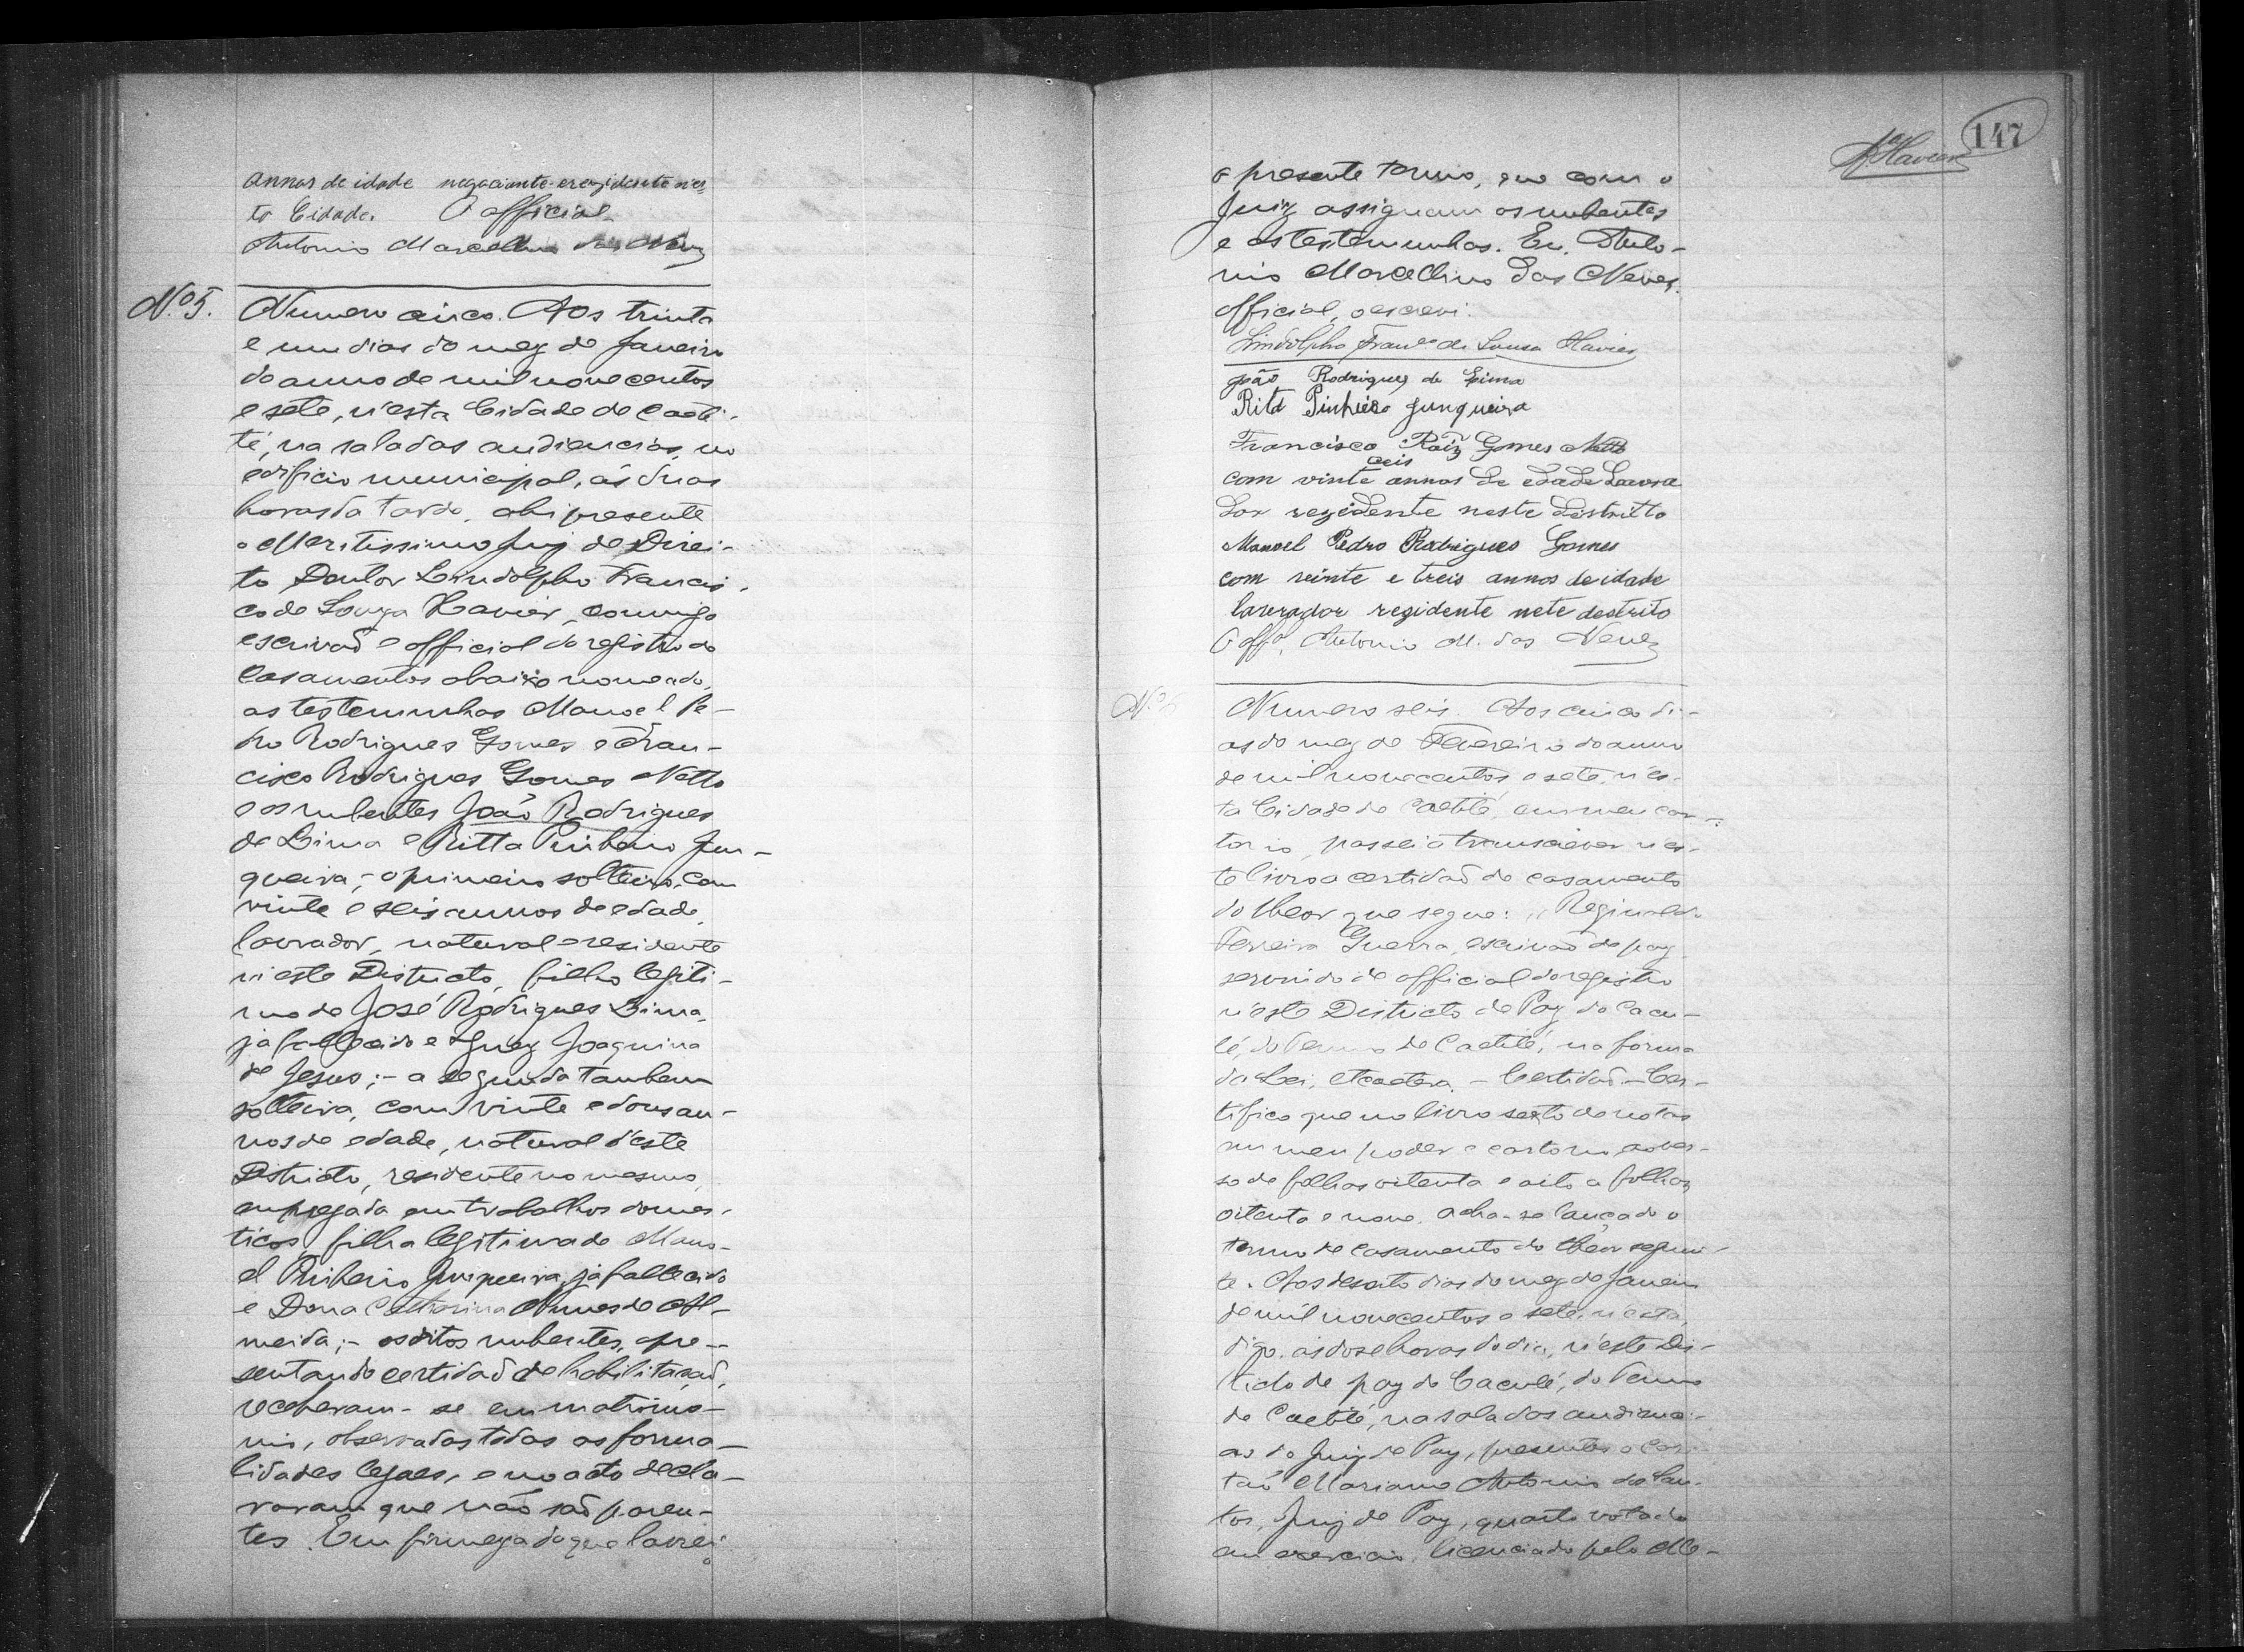 annos de idade negociante e rezidente n'es
ta Cidade. O official
Antonio Marcellino das Neves
Nº 5.
Numero cinco. Aos trinta
e um dias do mez de Janeiro
do anno de mil novecentos
e sete, n'esta Cidade de Caeti-
té, na sala das audiencias, no
edificio municipal, ás duas
horas da tarde, ahi presente
o Meritissimo Juiz de Direi-
to Doutor Lindolpho Francis-
co de Souza Xavier, commigo
escrivaõ e official do registro de
casamentos abaixo nomeado,
as testemunhas Manoel Pe-
dro Rodrigues Gomes e Fran-
cisco Rodrigues Gomes Netto
e os nubentes João Rodrigues
de Lima e Ritta Pinheiro Jun-
queira, - o primeiro solteiro, com
vinte e seis annos de edade,
lavrador, natural e residente
n'este Districto, filho legiti-
mo de José Rodrigues Lima,
já fallecido e Ignez Joaquina
de Jesus; - a segunda tambem
solteira, com vinte e dous an-
nos de edade, natural d'este
Districto, residente no mesmo,
empregada em trabalhos domes-
ticos, filha legitima de Mano-
el Pinheiro Junqueira, já fallecido
e Dona Catharina Nunes de Al-
meida; - os ditos nubentes, apre-
sentando certidaõ de habilitaçaõ,
receberam-se em matrimo-
nio, observadas todas as forma-
lidades legaes, e no acto decla-
raram que não saõ paren-
tes. Em firmeza do que lavrei
147
o presente termo, que com o
Juiz assignam os nubentes
e as testemunhas. Eu, Anto-
nio Marcellino das Neves,
official, o escrevi.
Lindolpho Franco de Sousa Xavier
João Rodrigues de Lima
Rita Pinheiro Junqueira
Francisco Roiz Gomes Netto
ceis
com vinte annos de edade Lavra
dor rezidente neste Destritto
Manoel Pedro Rodrigues Gomes
com veinte e treis annos de idade
lavrador rezidente nete destrito
O offal, Antonio M. das Neves
Nº 6
Numero seis. Aos cinco di-
as do mez de Fevereiro do anno
de mil novecentos e sete, n'es-
ta Cidade de Caetité, em meu car-
torio, passei a transcrever n'es-
te livro a certidaõ de casamento
do theor que segue: "Reginaldo
Ferreira Guerra, escrivaõ de paz
servindo de official do registro
n'este Districto de Paz do Cacu-
lé, do Termo de Caetité, na forma
da Lei, etcaetera. - Certidaõ - Cer-
tifico que no livro sexto de notas
em meu poder e cartorio, ao ver-
so de folhas oitenta e oito a folhas
oitenta e nove, acha-se lançado o
termo de casamento do theor seguin-
te. Aos desoito dias do mez de Janeiro
de mil novecentos e sete, n'esta,
digo, ás dose horas do dia, n'este Dis-
tricto de paz do Caculé, do Termo
de Caetité, na sala das audienci-
as do Juiz de Paz, presentes o Capi-
taõ Mariano Antonio dos San-
tos, Juiz de Paz, quarto votado
em exercicio, licenciado pelo Me-